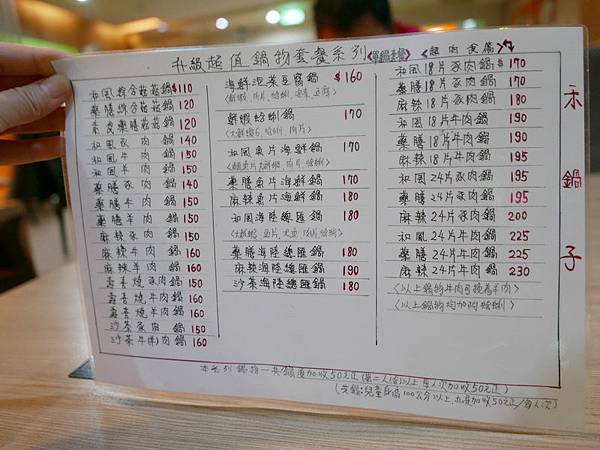 升級超值鍋物套餐系列 <單鍋套餐> <超肉食屬>
和風綜合菇菇鍋 $110
藥膳綜合菇菇鍋 120
素食藥膳菇菇鍋 120
和風豕肉鍋 140
和風牛肉鍋 150
和風羊肉鍋 150
藥膳豕肉鍋 140
藥膳牛肉鍋 150
藥膳羊肉鍋 150
麻辣豕肉鍋 150
麻辣牛肉鍋 160
麻辣羊肉鍋 160
壽喜燒豕肉鍋 150
壽喜燒牛肉鍋 160
壽喜燒羊肉鍋 160
沙茶豕肉鍋 150
沙茶牛(羊)肉鍋 160
海鮮泡菜豆腐鍋 $160
鮮蝦蛤蜊鍋 170
和風魚片海鮮鍋 170
藥膳魚片海鮮鍋 170
麻辣魚片海鮮鍋 180
和風海陸總匯鍋 180
藥膳海陸總匯鍋 180
麻辣海陸總匯鍋 190
沙茶海陸總匯鍋 180
和風18片豕肉鍋 $170
藥膳18片豕肉鍋 170
麻辣18片豕肉鍋 180
和風18片牛肉鍋 190
藥膳18片牛肉鍋 190
麻辣18片牛肉鍋 195
和風24片豕肉鍋 195
藥膳24片豕肉鍋 195
麻辣24片豕肉鍋 200
和風24片牛肉鍋 225
藥膳24片牛肉鍋 225
麻辣24片牛肉鍋 230
<以上鍋物牛肉可換為羊肉>
<以上鍋物均加附蛤蜊>
禾鍋子
本系列鍋物一共鍋要加收50元正(第二人(含)以上每人次加收50元正)
(共鍋:兒童身高100公分以上,亦需加收50元正/每人次)